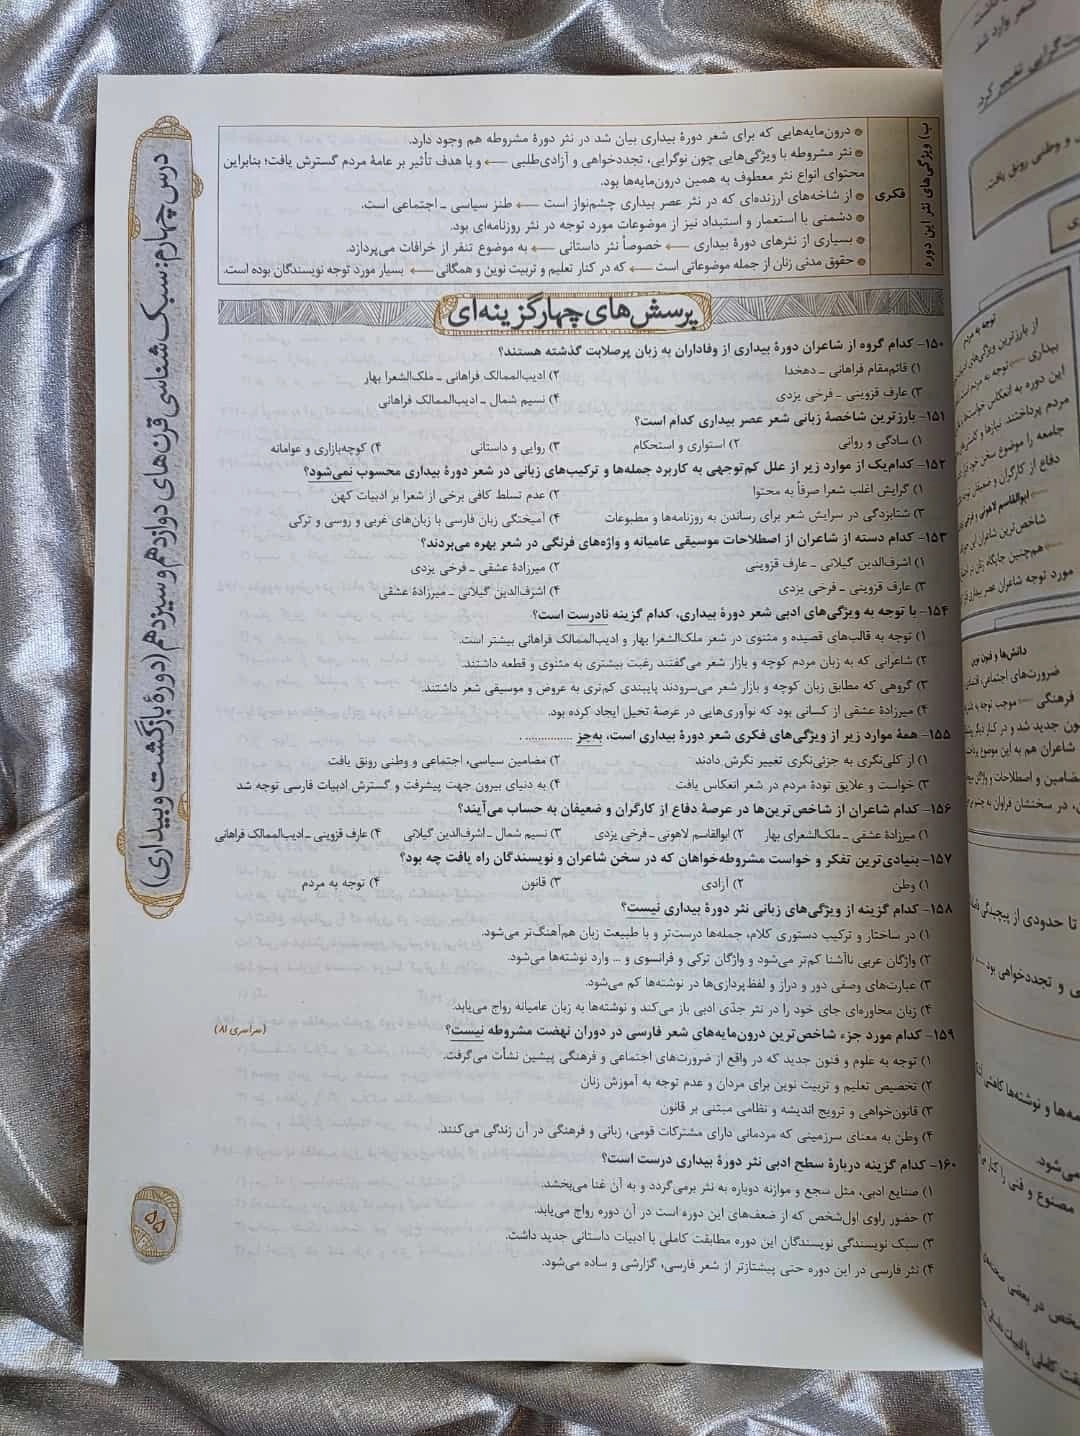 درس چهارم: سبک‌شناسی قرن‌های دوازدهم و سیزدهم (دورهٔ بازگشت و بیداری)
ب) ویژگی‌های نثر این دوره
فکری
درون‌مایه‌هایی که برای شعر دورهٔ بیداری بیان شد در نثر دورهٔ مشروطه هم وجود دارد.
نثر مشروطه با ویژگی‌هایی چون نوگرایی، تجددخواهی و آزادی‌طلبی ← و با هدف تأثیر بر عامهٔ مردم گسترش یافت؛ بنابراین
محتوای انواع نثر معطوف به همین درون‌مایه‌ها بود.
از شاخه‌های ارزنده‌ای که در نثر عصر بیداری چشم‌نواز است ← طنز سیاسی ـ اجتماعی است.
دشمنی با استعمار و استبداد نیز از موضوعات مورد توجه در نثر روزنامه‌ای بود.
بسیاری از نثرهای دورهٔ بیداری ← خصوصاً نثر داستانی ← به موضوع تنفر از خرافات می‌پردازد.
حقوق مدنی زنان از جمله موضوعاتی است ← که در کنار تعلیم و تربیت نوین و همگانی ← بسیار مورد توجه نویسندگان بوده است.
پرسش‌های چهارگزینه‌ای
۱۵۰- کدام گروه از شاعران دورهٔ بیداری از وفاداران به زبان پرصلابت گذشته هستند؟
۱) قائم‌مقام فراهانی ـ دهخدا ۲) ادیب‌الممالک فراهانی ـ ملک‌الشعرا بهار
۳) عارف قزوینی ـ فرخی یزدی ۴) نسیم شمال ـ ادیب‌الممالک فراهانی
۱۵۱- بارزترین شاخصهٔ زبانی شعر عصر بیداری کدام است؟
۱) سادگی و روانی ۲) استواری و استحکام ۳) روایی و داستانی ۴) کوچه‌بازاری و عوامانه
۱۵۲- کدام‌یک از موارد زیر از علل کم‌توجهی به کاربرد جمله‌ها و ترکیب‌های زبانی در شعر دورهٔ بیداری محسوب نمی‌شود؟
۱) گرایش اغلب شعرا صرفاً به محتوا ۲) عدم تسلط کافی برخی از شعرا بر ادبیات کهن
۳) شتابزدگی در سرایش شعر برای رساندن به روزنامه‌ها و مطبوعات ۴) آمیختگی زبان فارسی با زبان‌های غربی و روسی و ترکی
۱۵۳- کدام دسته از شاعران از اصطلاحات موسیقی عامیانه و واژه‌های فرنگی در شعر بهره می‌بردند؟
۱) اشرف‌الدین گیلانی ـ عارف قزوینی ۲) میرزادهٔ عشقی ـ فرخی یزدی
۳) عارف قزوینی ـ فرخی یزدی ۴) اشرف‌الدین گیلانی ـ میرزادهٔ عشقی
۱۵۴- با توجه به ویژگی‌های ادبی شعر دورهٔ بیداری، کدام گزینه نادرست است؟
۱) توجه به قالب‌های قصیده و مثنوی در شعر ملک‌الشعرا بهار و ادیب‌الممالک فراهانی بیشتر است.
۲) شاعرانی که به زبان مردم کوچه و بازار شعر می‌گفتند رغبت بیشتری به مثنوی و قطعه داشتند.
۳) گروهی که مطابق زبان کوچه و بازار شعر می‌سرودند پایبندی کم‌تری به عروض و موسیقی شعر داشتند.
۴) میرزادهٔ عشقی از کسانی بود که نوآوری‌هایی در عرصهٔ تخیل ایجاد کرده بود.
۱۵۵- همهٔ موارد زیر از ویژگی‌های فکری شعر دورهٔ بیداری است، به‌جز ............... .
۱) از کلی‌نگری به جزئی‌نگری تغییر نگرش دادند ۲) مضامین سیاسی، اجتماعی و وطنی رونق یافت
۳) خواست و علایق تودهٔ مردم در شعر انعکاس یافت ۴) به دنیای بیرون جهت پیشرفت و گسترش ادبیات فارسی توجه شد
۱۵۶- کدام شاعران از شاخص‌ترین‌ها در عرصهٔ دفاع از کارگران و ضعیفان به حساب می‌آیند؟
۱) میرزادهٔ عشقی ـ ملک‌الشعرای بهار ۲) ابوالقاسم لاهوتی ـ فرخی یزدی ۳) نسیم شمال ـ اشرف‌الدین گیلانی ۴) عارف قزوینی ـ ادیب‌الممالک فراهانی
۱۵۷- بنیادی‌ترین تفکر و خواست مشروطه‌خواهان که در سخن شاعران و نویسندگان راه یافت چه بود؟
۱) وطن ۲) آزادی ۳) قانون ۴) توجه به مردم
۱۵۸- کدام گزینه از ویژگی‌های زبانی نثر دورهٔ بیداری نیست؟
۱) در ساختار و ترکیب دستوری کلام، جمله‌ها درست‌تر و با طبیعت زبان هم‌آهنگ‌تر می‌شود.
۲) واژگان عربی ناآشنا کم‌تر می‌شود و واژگان ترکی و فرانسوی و ... وارد نوشته‌ها می‌شود.
۳) عبارت‌های وصفی دور و دراز و لفظ‌پردازی‌ها در نوشته‌ها کم می‌شود.
۴) زبان محاوره‌ای جای خود را در نثر جدّی ادبی باز می‌کند و نوشته‌ها به زبان عامیانه رواج می‌یابد.
۱۵۹- کدام مورد جزء شاخص‌ترین درون‌مایه‌های شعر فارسی در دوران نهضت مشروطه نیست؟ (سراسری ۸۱)
۱) توجه به علوم و فنون جدید که در واقع از ضرورت‌های اجتماعی و فرهنگی پیشین نشأت می‌گرفت.
۲) تخصیص تعلیم و تربیت نوین برای مردان و عدم توجه به آموزش زنان
۳) قانون‌خواهی و ترویج اندیشه و نظامی مبتنی بر قانون
۴) وطن به معنای سرزمینی که مردمانی دارای مشترکات قومی، زبانی و فرهنگی در آن زندگی می‌کنند.
۱۶۰- کدام گزینه دربارهٔ سطح ادبی نثر دورهٔ بیداری درست است؟
۱) صنایع ادبی، مثل سجع و موازنه دوباره به نثر برمی‌گردد و به آن غنا می‌بخشد.
۲) حضور راوی اول‌شخص که از ضعف‌های این دوره است در آن دوره رواج می‌یابد.
۳) سبک نویسندگی نویسندگان این دوره مطابقت کاملی با ادبیات داستانی جدید داشت.
۴) نثر فارسی در این دوره حتی پیشتازتر از شعر فارسی، گزارشی و ساده می‌شود.
۵۵